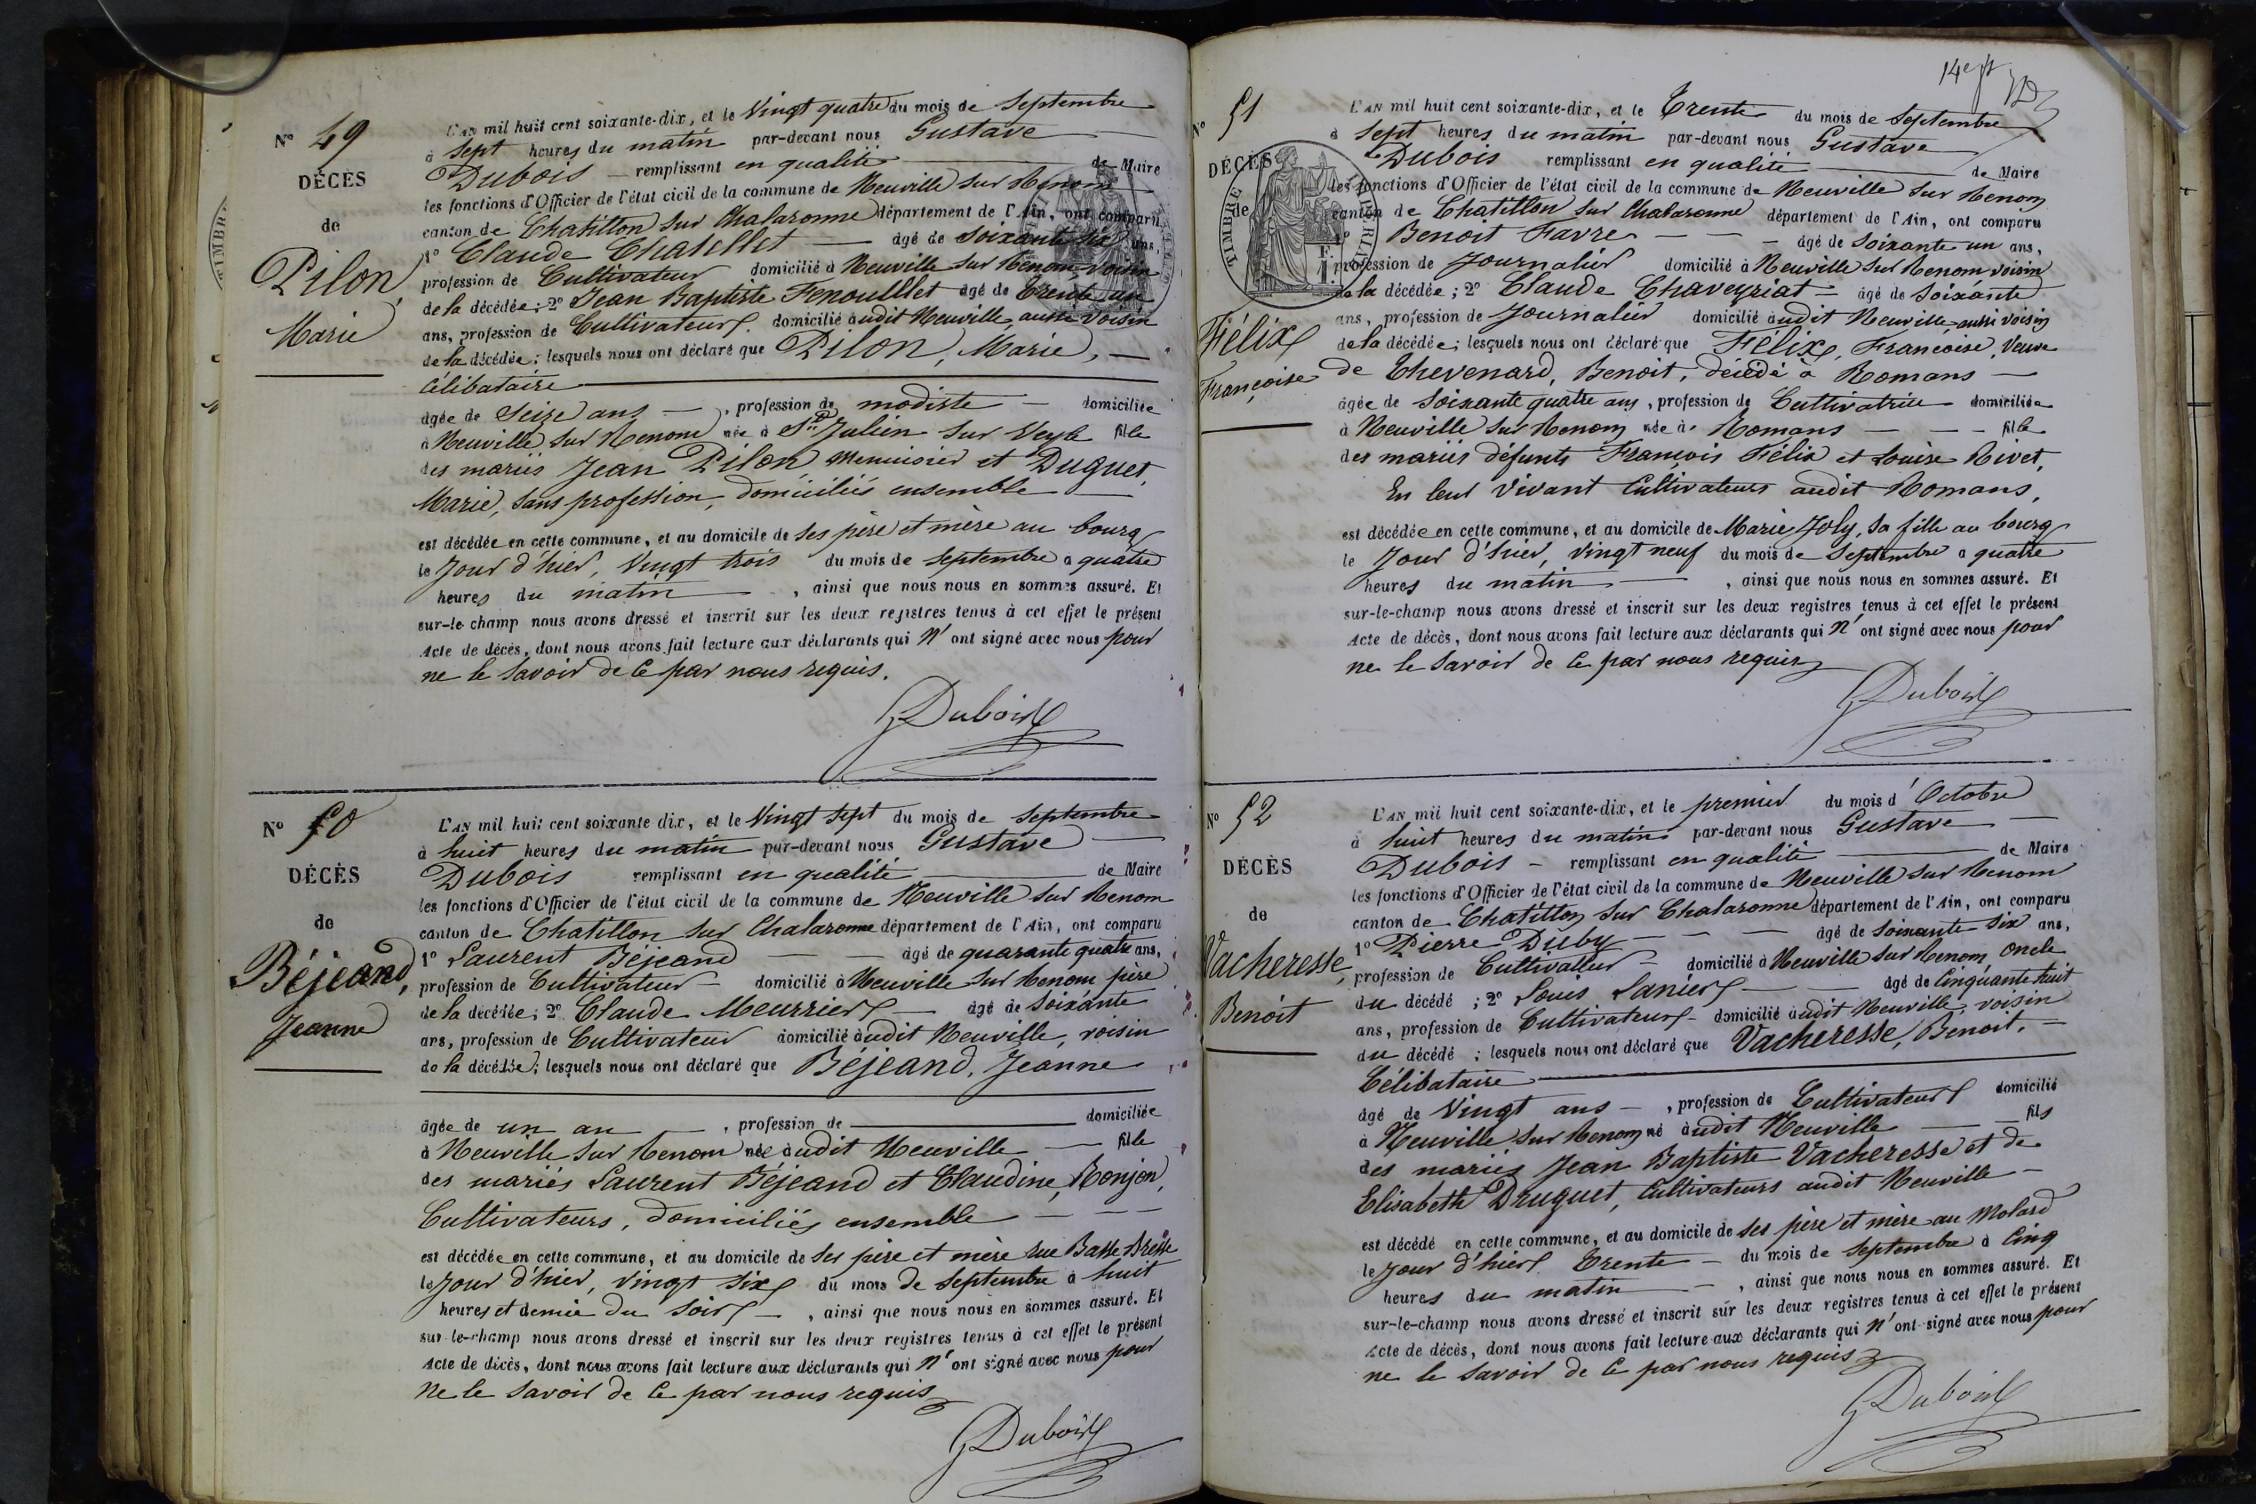 Nº 49
DÉCÈS
de
Pilon,
Marie
L'AN mil huit cent soixante-dix, et le Vingt quatre du mois de Septembre
à Sept heures du matin par-devant nous Gustave
Dubois remplissant en qualité de Maire
les fonctions d'Officier de l'état civil de la commune de Neuville sur Renom
canton de Chatillon sur Chalaronne département de l'Ain, ont comparu
1º Claude Chatellet âgé de Soixante six ans,
profession de Cultivateur domicilié à Neuville sur Renom voisin
de la décédée; 2º Jean Baptiste Fenoulllet âgé de trente un
ans, profession de Cultivateur domicilié audit Neuville, aussi voisin
de la décédée; lesquels nous ont déclaré que Pilon, Marie,
Célibataire
âgée de Seize ans, profession de modiste domiciliée
à Neuville sur Renom née à St Julien sur Veyle fille
des mariés Jean Pilon Menuisier et Duguet,
Marie, sans profession, domiciliés ensemble
est décédée en cette commune, et au domicile de ses père et mère au bourg
le Jour d'hier, Vingt trois du mois de Septembre a quatre
heures du matin, ainsi que nous nous en sommes assuré. Et
sur-le-champ nous avons dressé et inscrit sur les deux registres tenus à cet effet le présent
Acte de décès, dont nous avons fait lecture aux déclarants qui n'ont signé avec nous pour
ne le savoir de ce par nous requis.
GDubois
Nº 50
DÉCÈS
de
Béjeand,
Jeanne
L'AN mil huit cent soixante dix, et le Vingt Sept du mois de Septembre
à huit heures du matin par-devant nous Gustave
Dubois remplissant en qualité de Maire
les fonctions d'Officier de l'état civil de la commune de Neuville sur Renom
canton de Chatillon sur Chalaronne département de l'Ain, ont comparu
1º Laurent Béjeand âgé de quarante quatre ans,
profession de Cultivateur domicilié à Neuville sur Renom père
de la décédée; 2º Claude Meurrier âgé de Soixante
ans, profession de Cultivateur domicilié audit Neuville, voisin
de la décédée; lesquels nous ont déclaré que Béjeand, Jeanne
âgée de un an, profession de domiciliée
à Neuville sur Renom née audit Neuville fille
des mariés Laurent Béjeand et Claudine Ronjon,
Cultivateurs, domiciliés ensemble
est décédée en cette commune, et au domicile de ses père et mère rue Basse Bresse
le Jour d'hier, Vingt six du mois de Septembre à huit
heures et demie du soir, ainsi que nous nous en sommes assuré. Et
sur-le-champ nous avons dressé et inscrit sur les deux registres tenus à cet effet le présent
Acte de décès, dont nous avons fait lecture aux déclarants qui n'ont signé avec nous pour
ne le savoir de ce par nous requis
GDubois
Nº 51
DÉCÈS
de
Félix
Françoise
TIMBRE
L'AN mil huit cent soixante-dix, et le Trente du mois de Septembre
à Sept heures du matin par-devant nous Gustave
Dubois remplissant en qualité de Maire
les fonctions d'Officier de l'état civil de la commune de Neuville sur Renom
canton de Chatillon sur Chalaronne département de l'Ain, ont comparu
1º Benoit Favre âgé de Soixante un ans,
profession de Journalier domicilié à Neuville sur Renom voisin
de la décédée; 2º Claude Chaveyriat âgé de Soixante
ans, profession de Journalier domicilié audit Neuville, aussi voisin
de la décédée; lesquels nous ont déclaré que Félix, Françoise, Veuve
de Thevenard, Benoit, décédé à Romans
âgée de Soixante quatre ans, profession de Cultivatrice domiciliée
à Neuville sur Renom née à Romans fille
des mariés défunts François Félix et Louise Rivet,
En leur Vivant Cultivateurs audit Romans,
est décédée en cette commune, et au domicile de Marie Joly, sa fille au bourg
le Jour d'hier, Vingt neuf du mois de Septembre a quatre
heures du matin, ainsi que nous nous en sommes assuré. Et
sur-le-champ nous avons dressé et inscrit sur les deux registres tenus à cet effet le présent
Acte de décès, dont nous avons fait lecture aux déclarants qui n'ont signé avec nous pour
ne le savoir de ce par nous requis
GDubois
Nº 52
DÉCÈS
de
Vacheresse,
Benoit
L'AN mil huit cent soixante-dix, et le premier du mois d'Octobre
à huit heures du matin par-devant nous Gustave
Dubois remplissant en qualité de Maire
les fonctions d'Officier de l'état civil de la commune de Neuville sur Renom
canton de Chatillon sur Chalaronne département de l'Ain, ont comparu
1º Pierre Duby âgé de soixante six ans,
profession de Cultivateur domicilié à Neuville sur Renom oncle
du décédé; 2º Louis Lanier âgé de Cinquante huit
ans, profession de Cultivateur domicilié audit Neuville, voisin
du décédé; lesquels nous ont déclaré que Vacheresse, Benoit,
Célibataire
âgé de Vingt ans, profession de Cultivateur domicilié
à Neuville sur Renom né audit Neuville fils
des mariés Jean Baptiste Vacheresse et de
Elisabeth Druguet, Cultivateurs audit Neuville
est décédé en cette commune, et au domicile de ses père et mère au Molard
le Jour d'hier Trente du mois de Septembre à Cinq
heures du matin, ainsi que nous nous en sommes assuré. Et
sur-le-champ nous avons dressé et inscrit sur les deux registres tenus à cet effet le présent
Acte de décès, dont nous avons fait lecture aux déclarants qui n'ont signé avec nous pour
ne le savoir de ce par nous requis
GDubois